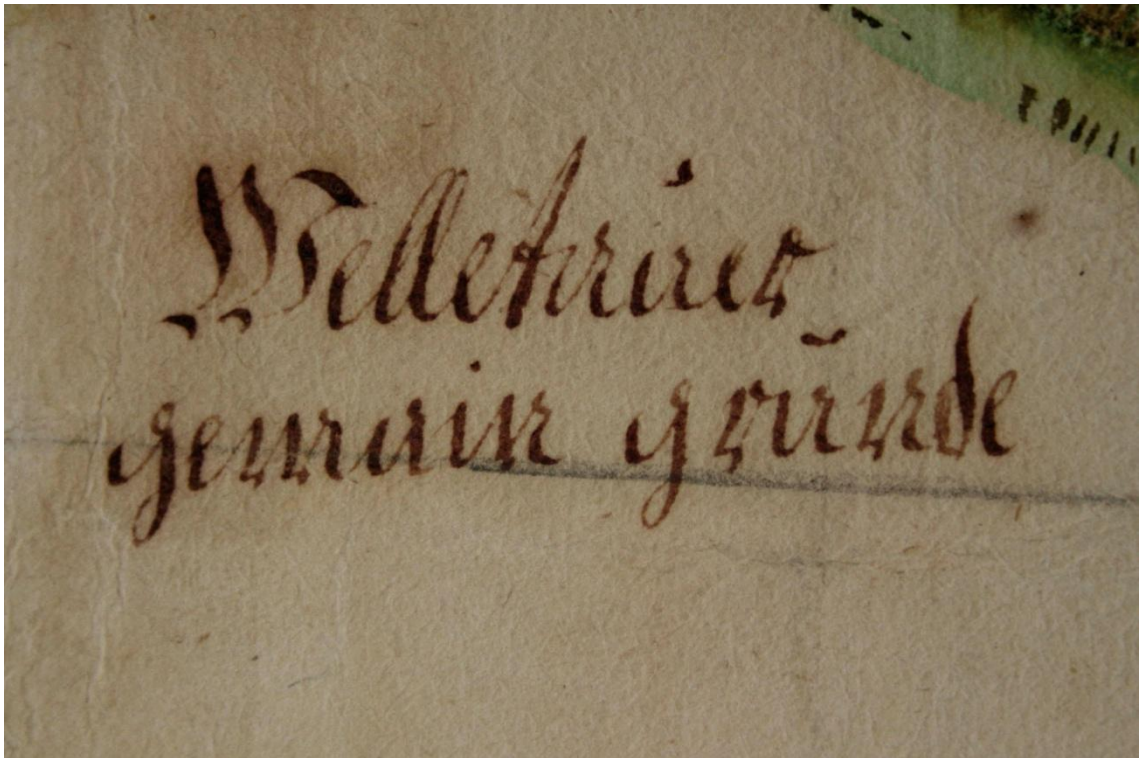 Welletriner
gemain gründe